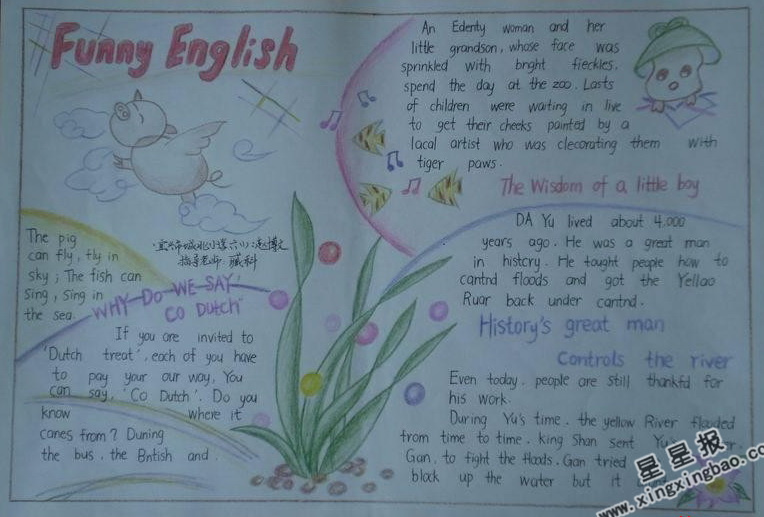 Funny English
The pig
can fly, fly in
sky; The fish can
sing, sing in
the sea.
指导老师:
WHY DO WE SAY
CO DUTCH"
If you are invited to
'Dutch treat', each of you have
to pay your our way. You
can say, "Co Dutch". Do you
know where it
canes from? Duning
the bus, the Bntish and.
An Edenty woman and her
little grandson, whose face was
sprinkled with bright fieckles,
spend the day at the zoo. Lasts
of children were waiting in live
to get their cheeks painted by a
lacal artist who was clecorating them with
tiger paws.
The Wisdom of a little boy
DA Yu lived about 4.000
years ago. He was a great man
in histcry. He tought people how to
cantnd floods and got the Yellao
Ruar back under cantnd.
History's great man
Controls the river
Even today, people are still thankfd for
his work.
During Yu's time, the yellow River flooded
from time to time. king Shan sent Yu's
Gan, to fight the floods. Gan tried
block up the water but it
星星报
www.xingxingbao.com